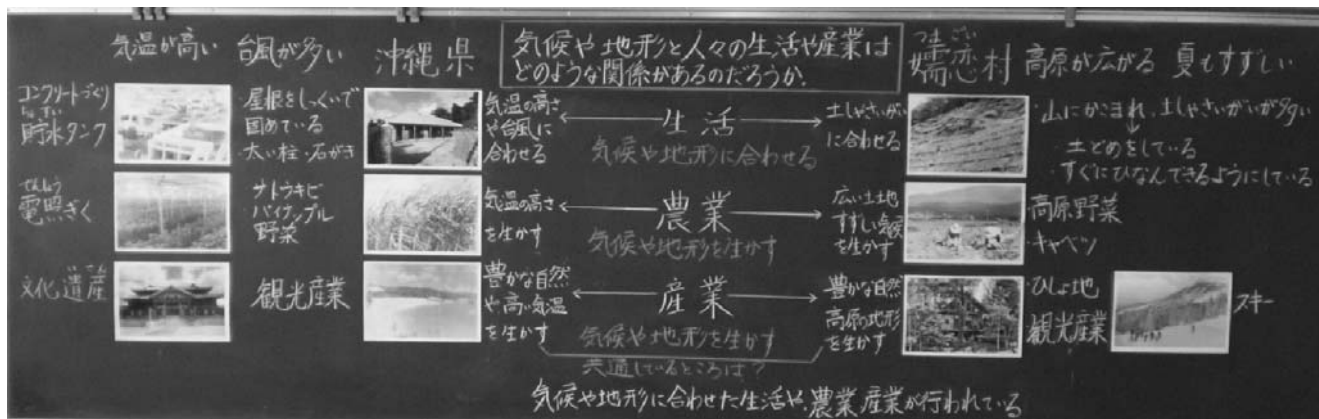 気温が高い
台風が多い
沖縄県
気候や地形と人々の生活や産業は
どのような関係があるのだろうか。
つま ごい
嬬恋村
高原が広がる
夏もすずしい
コンクリートづくり
ちょすい
貯水タンク
・屋根をしっくいで
固めている
・太い柱・石がき
気温の高さ
や台風に
合わせる
生活
気候や地形に合わせる
土しゃさいがい
に合わせる
・山にかこまれ、土しゃさいがいが多い
・土どめをしている
・すぐにひなんできるようにしている
でんしょう
電照ぎく
サトウキビ
パイナップル
野菜
気温の高さ
を生かす
農業
気候や地形を生かす
広い土地
すずしい気候
を生かす
高原野菜
・キャベツ
いさん
文化遺産
観光産業
豊かな自然
や高い気温
を生かす
産業
気候や地形を生かす
豊かな自然
高原の地形
を生かす
・ひしょ地
観光産業
スキー
共通しているところは?
気候や地形に合わせた生活や、農業、産業が行われている